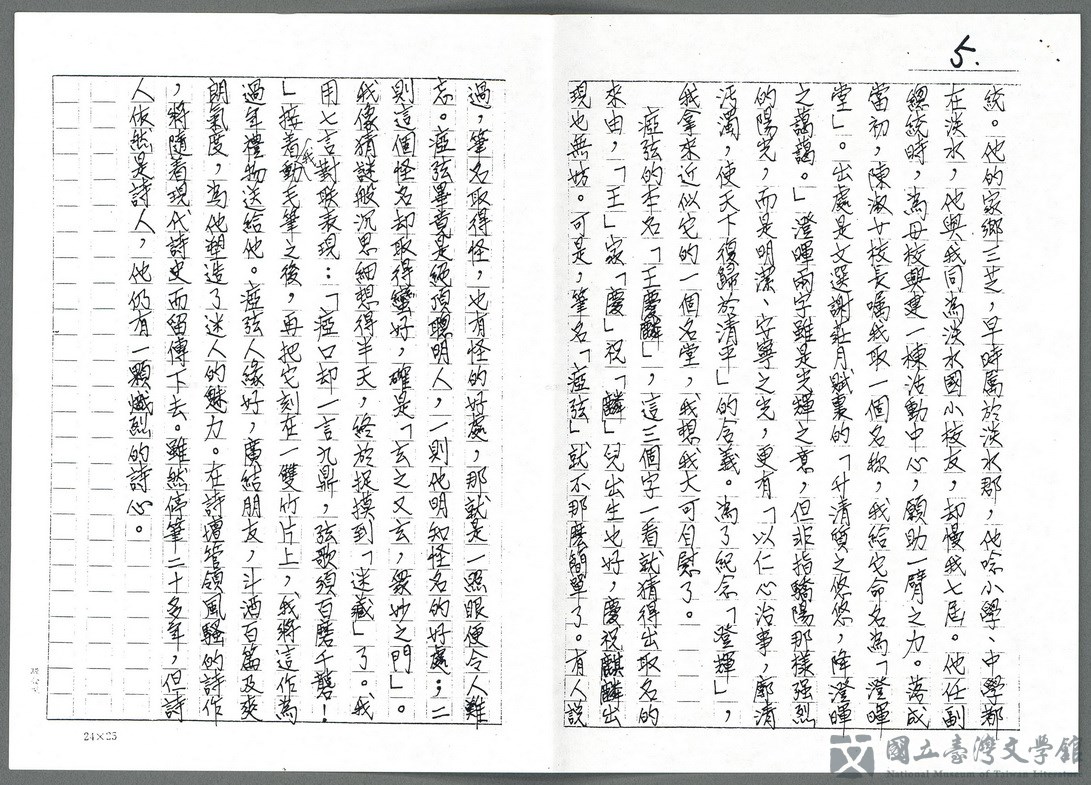 5.
統。他的家鄉三芝，早時属於淡水郡，他唸小學、中學都
在淡水，他與我同為淡水國小校友，却慢我七屆。他任副
總統時，為母校興建一棟活動中心，願助一臂之力。落成
當初，陳淑女校長囑我取一個名称，我給它命名為「澄暉
堂」。出處是文選謝莊月賦裏的「升清質之悠悠，降澄暉
之藹藹。」澄暉兩字雖是光輝之意，但非指驕陽那樣强烈
的陽光，而是明潔、安寧之光，更有「以仁心治事，廓清
汚濁，使天下復歸於清平」的含義。為了紀念「登輝」，
我拿來近似它的一個名堂，我想我大可自慰了。
瘂弦的本名「王慶麟」，這三個字一看就猜得出取名的
來由，「王」家「慶」祝「麟」兒出生也好，慶祝麒麟出
現也無妨。可是，筆名「瘂弦」就不那麼簡單了。有人說
過，筆名取得怪，也有怪的好處，那就是一照眼便令人難
忘。瘂弦畢竟是絕頂聰明人，一則他明知怪名的好處；二
則這個怪名却取得蠻好，確是「玄之又玄，衆妙之門」。
我像猜謎般沉思細想得半天，終於捉摸到「迷藏」了。我
用七言對联表現：「瘂口却一言九鼎，弦歌須百磨千磬！
」接着我動毛筆之後，再把它刻在一雙竹片上，我將這作為
過年禮物送給他。瘂弦人緣好，廣結朋友，斗酒百篇及爽
朗氣度，為他塑造了迷人的魅力。在詩壇管領風騷的詩作
，將隨着現代詩史而留傳下去。雖然停筆二十多年，但詩
人依然是詩人，他仍有一顆熾烈的詩心。
24×25
國立臺灣文學館
National Museum of Taiwan Literature